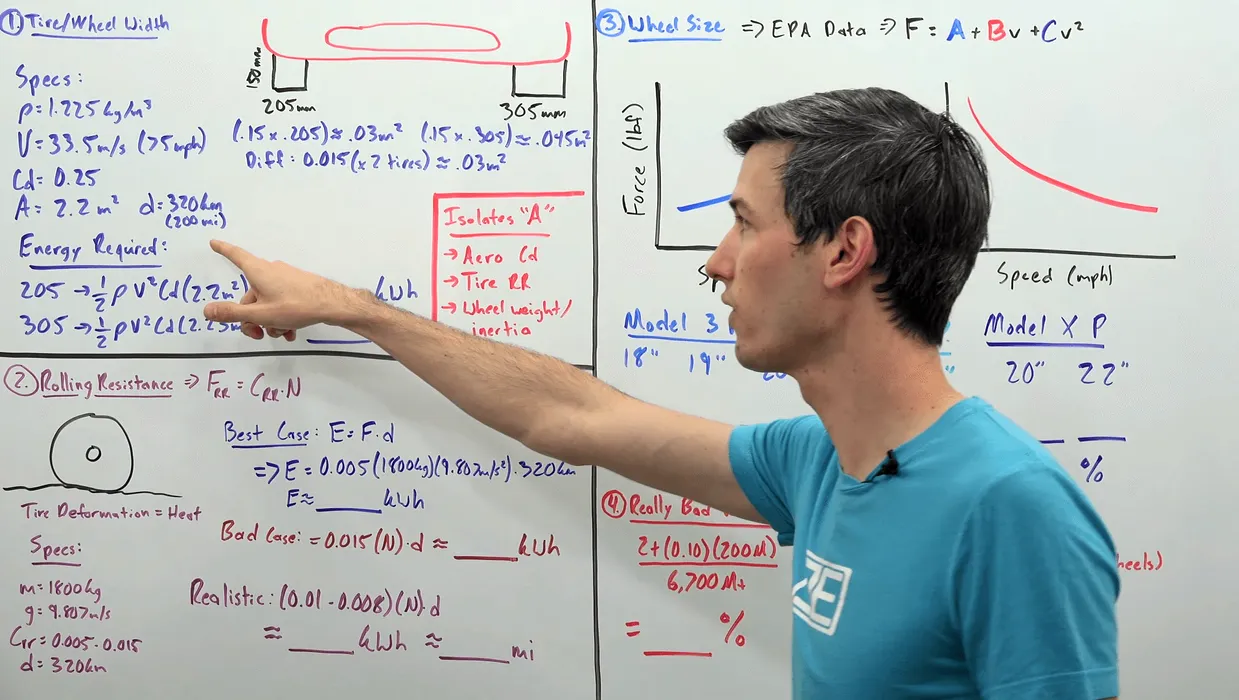 1. Tire/Wheel Width
150mm
205mm
305mm
Specs:
ρ=1.225 kg/m³
V=33.5m/s (75mph)
Cd=0.25
A=2.2m² d=320km
(200mi)
(.15x.205)≈.03m² (.15x.305)≈.045m²
Diff: 0.015(x2 tires)≈.03m²
Energy Required:
205 → ½ρV²Cd(2.2m²)
kWh
305 → ½ρV²Cd(2.23m
Isolates "A"
→ Aero Cd
→ Tire RR
→ Wheel weight/
inertia
2. Rolling Resistance ⇒ F_RR = C_RR·N
Tire Deformation = Heat
Specs:
m=1800kg
g=9.807m/s
Crr=0.005-0.015
d=320km
Best Case: E=F·d
⇒E=0.005(1800kg)(9.807m/s²)·320km
E≈____kWh
Bad Case: =0.015(N)·d ≈ ____kWh
Realistic: (0.01-0.008)(N)·d
≈ ____kWh ≈ ____mi
3. Wheel Size ⇒ EPA Data ⇒ F=A+Bv+Cv²
Force (lbf)
Sp
Speed (mph)
Model 3
18" 19" 20
"
Model X P
20" 22"
%
4. Really Bad
2+(0.10)(200M)
6,700M+
= ____ %
heels)